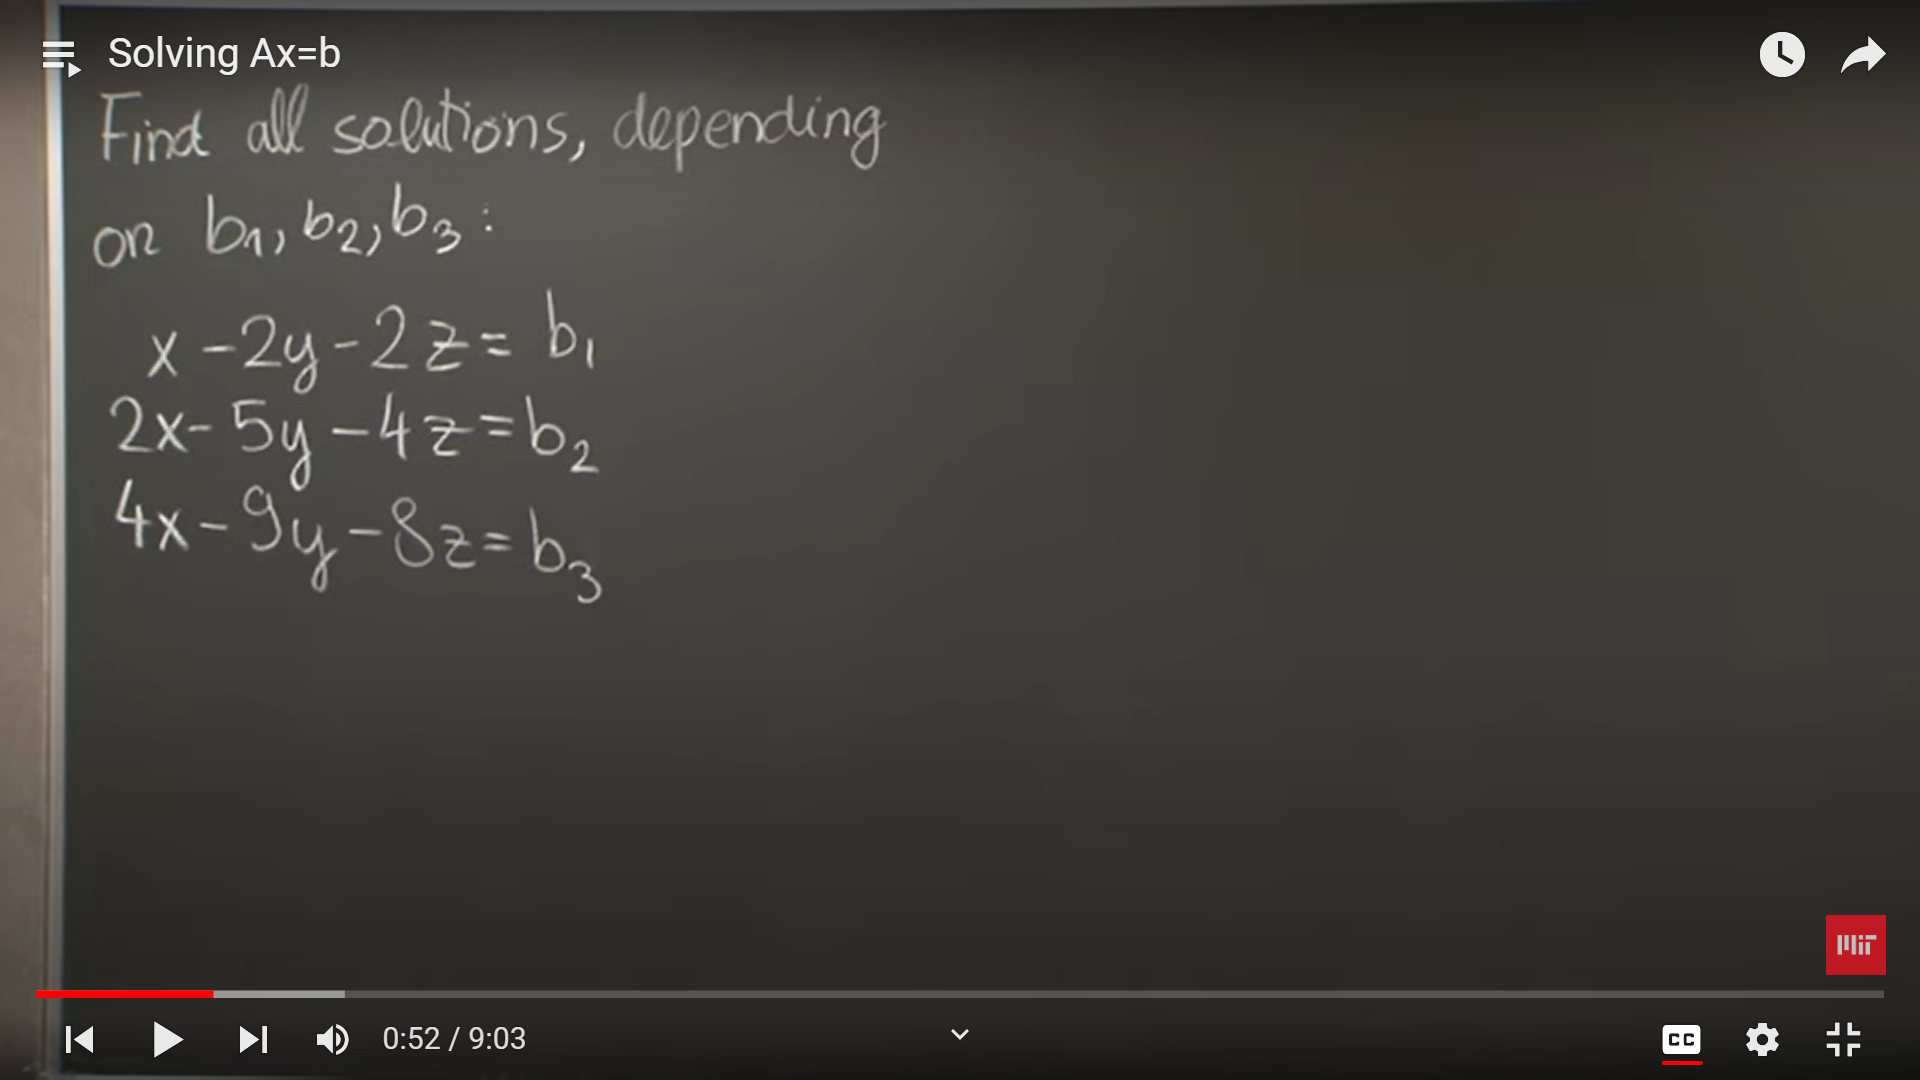 Solving Ax=b
Find all solutions, depending
on b₁, b₂, b₃ :
x - 2y - 2z = b₁
2x - 5y - 4z = b₂
4x - 9y - 8z = b₃
MIT
0:52 / 9:03
CC